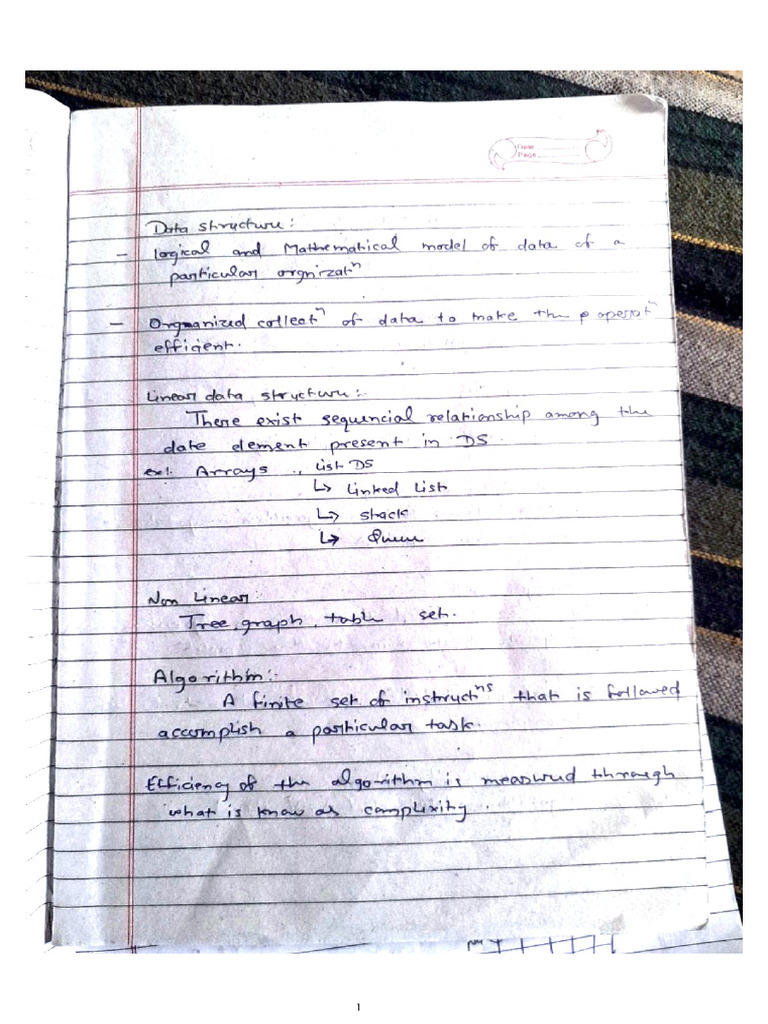 Date
Page
Data structure:
- Logical and Mathematical model of data of a
particular orgnizatⁿ
- Orgmanized collectⁿ of data to make the operatⁿ
efficient.
Linear data structure:-
There exist sequencial relationship among the
date element present in DS
ex!: Arrays ., List DS
↳ Linked List
↳ stack
↳ Queue
Non Linear:
Tree, graph, table, set.
Algorithm:-
A finite set of instructⁿˢ that is followed
accomplish a particular task.
Efficiency of the algorithm is measured through
what is know as complixity.
1